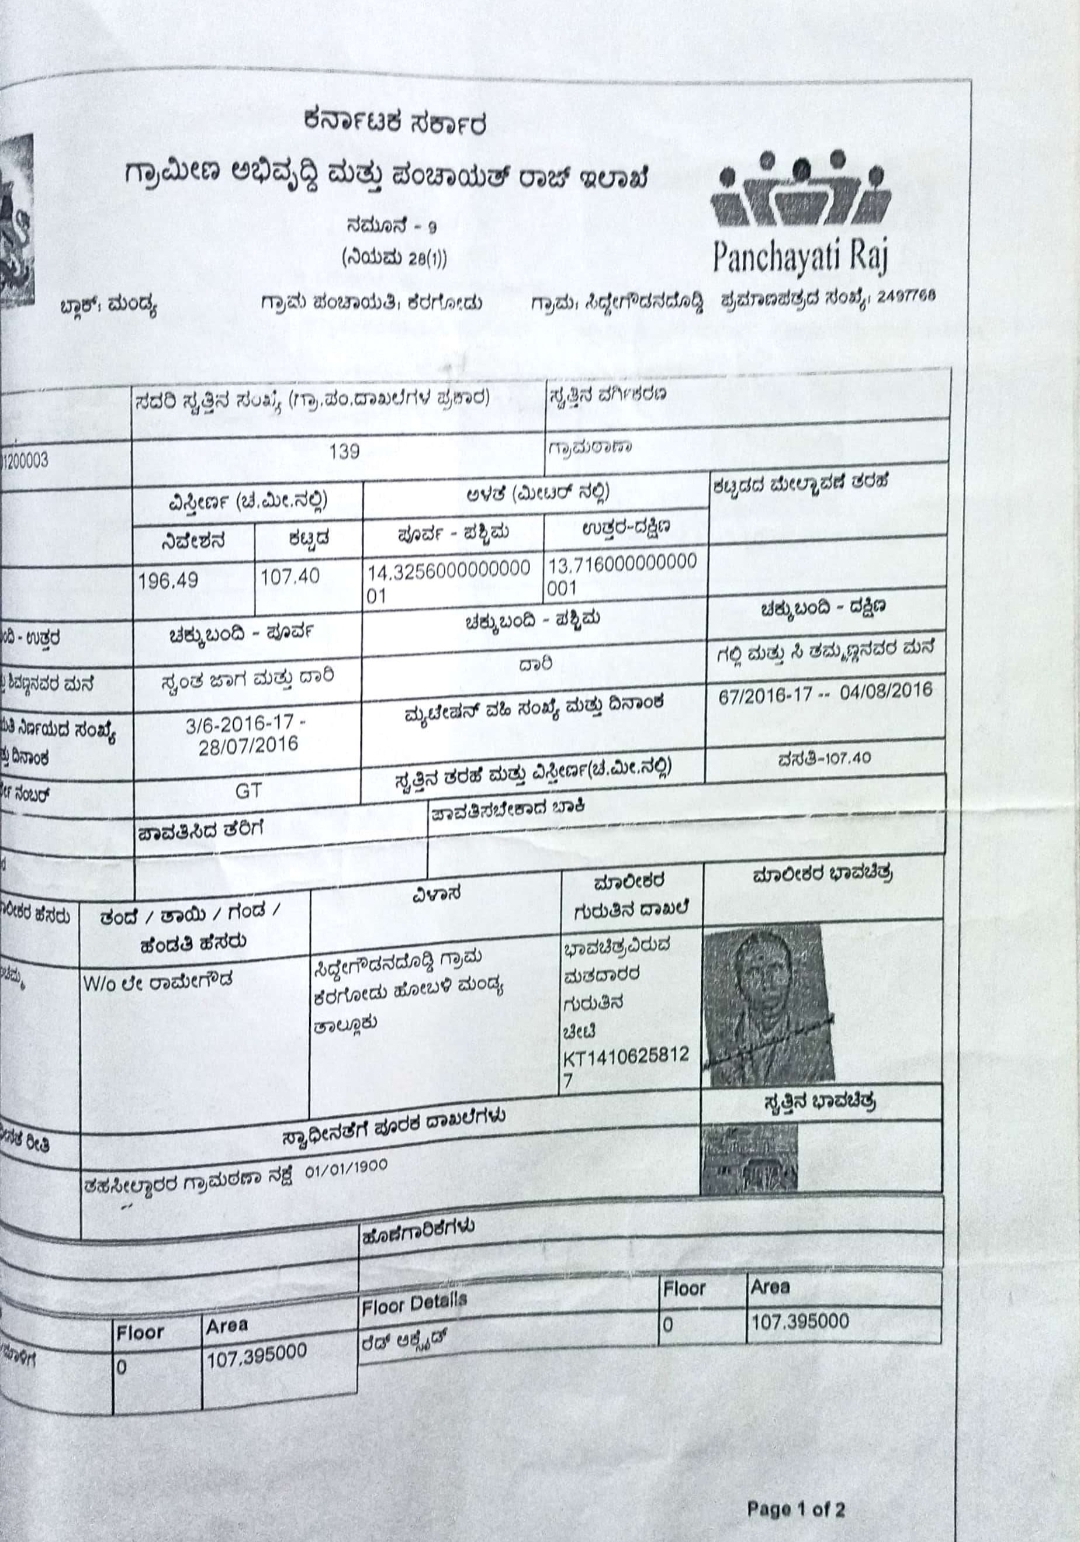 ಕರ್ನಾಟಕ ಸರ್ಕಾರ
ಗ್ರಾಮೀಣ ಅಭಿವೃದ್ಧಿ ಮತ್ತು ಪಂಚಾಯತ್ ರಾಜ್ ಇಲಾಖೆ
ನಮೂನೆ - 9
(ನಿಯಮ 28(1))
Panchayati Raj
ಬ್ಲಾಕ್: ಮಂಡ್ಯ ಗ್ರಾಮ ಪಂಚಾಯತಿ: ಕೆರಗೋಡು ಗ್ರಾಮ: ಸಿದ್ದೇಗೌಡನದೊಡ್ಡಿ ಪ್ರಮಾಣಪತ್ರದ ಸಂಖ್ಯೆ: 2497768
ಸದರಿ ಸ್ವತ್ತಿನ ಸಂಖ್ಯೆ (ಗ್ರಾ.ಪಂ.ದಾಖಲೆಗಳ ಪ್ರಕಾರ) ಸ್ವತ್ತಿನ ವರ್ಗೀಕರಣ
1200003 139 ಗ್ರಾಮಠಾಣಾ
ವಿಸ್ತೀರ್ಣ (ಚ.ಮೀ.ನಲ್ಲಿ) ಅಳತೆ (ಮೀಟರ್ ನಲ್ಲಿ) ಕಟ್ಟಡದ ಮೇಲ್ಛಾವಣಿ ತರಹೆ
ನಿವೇಶನ ಕಟ್ಟಡ ಪೂರ್ವ - ಪಶ್ಚಿಮ ಉತ್ತರ-ದಕ್ಷಿಣ
196.49 107.40 14.3256000000000 13.716000000000
01 001
- ಉತ್ತರ ಚಕ್ಕುಬಂದಿ - ಪೂರ್ವ ಚಕ್ಕುಬಂದಿ - ಪಶ್ಚಿಮ ಚಕ್ಕುಬಂದಿ - ದಕ್ಷಿಣ
ಶಿವಣ್ಣನವರ ಮನೆ ಸ್ವಂತ ಜಾಗ ಮತ್ತು ದಾರಿ ದಾರಿ ಗಲ್ಲಿ ಮತ್ತು ಸಿ ತಮ್ಮಣ್ಣನವರ ಮನೆ
ನಿರ್ಣಯದ ಸಂಖ್ಯೆ 3/6-2016-17 - ಮ್ಯುಟೇಷನ್ ವಹಿ ಸಂಖ್ಯೆ ಮತ್ತು ದಿನಾಂಕ 67/2016-17 -- 04/08/2016
ದಿನಾಂಕ 28/07/2016
ನಂಬರ್ GT ಸ್ವತ್ತಿನ ತರಹೆ ಮತ್ತು ವಿಸ್ತೀರ್ಣ(ಚ.ಮೀ.ನಲ್ಲಿ) ವಸತಿ-107.40
ಪಾವತಿಸಿದ ತೆರಿಗೆ ಪಾವತಿಸಬೇಕಾದ ಬಾಕಿ
ಹೆಸರು ತಂದೆ / ತಾಯಿ / ಗಂಡ / ವಿಳಾಸ ಮಾಲೀಕರ ಮಾಲೀಕರ ಭಾವಚಿತ್ರ
ಹೆಂಡತಿ ಹೆಸರು ಗುರುತಿನ ದಾಖಲೆ
W/o ಲೇ ರಾಮೇಗೌಡ ಸಿದ್ದೇಗೌಡನದೊಡ್ಡಿ ಗ್ರಾಮ ಭಾವಚಿತ್ರವಿರುವ
ಕೆರಗೋಡು ಹೋಬಳಿ ಮಂಡ್ಯ ಮತದಾರರ
ತಾಲ್ಲೂಕು ಗುರುತಿನ
ಚೀಟಿ
KT1410625812
7
ರೀತಿ ಸ್ವಾಧೀನತೆಗೆ ಪೂರಕ ದಾಖಲೆಗಳು ಸ್ವತ್ತಿನ ಭಾವಚಿತ್ರ
ತಹಸೀಲ್ದಾರರ ಗ್ರಾಮಠಣಾ ನಕ್ಷೆ 01/01/1900
ಹೊಣೆಗಾರಿಕೆಗಳು
Floor Area Floor Details Floor Area
0 107.395000 ರೆಡ್ ಆಕ್ಸೈಡ್ 0 107.395000
Page 1 of 2